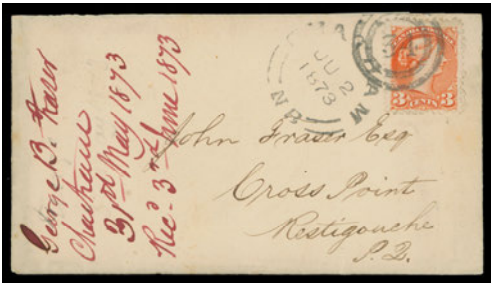 George B. Fraser
Chatham
31st May 1873
Rec'd 3rd June 1873
CHATHAM
JU 2
1873
N.B
3 CENTS 3
John Fraser Esq
Cross Point
Restigouche
P.Q.